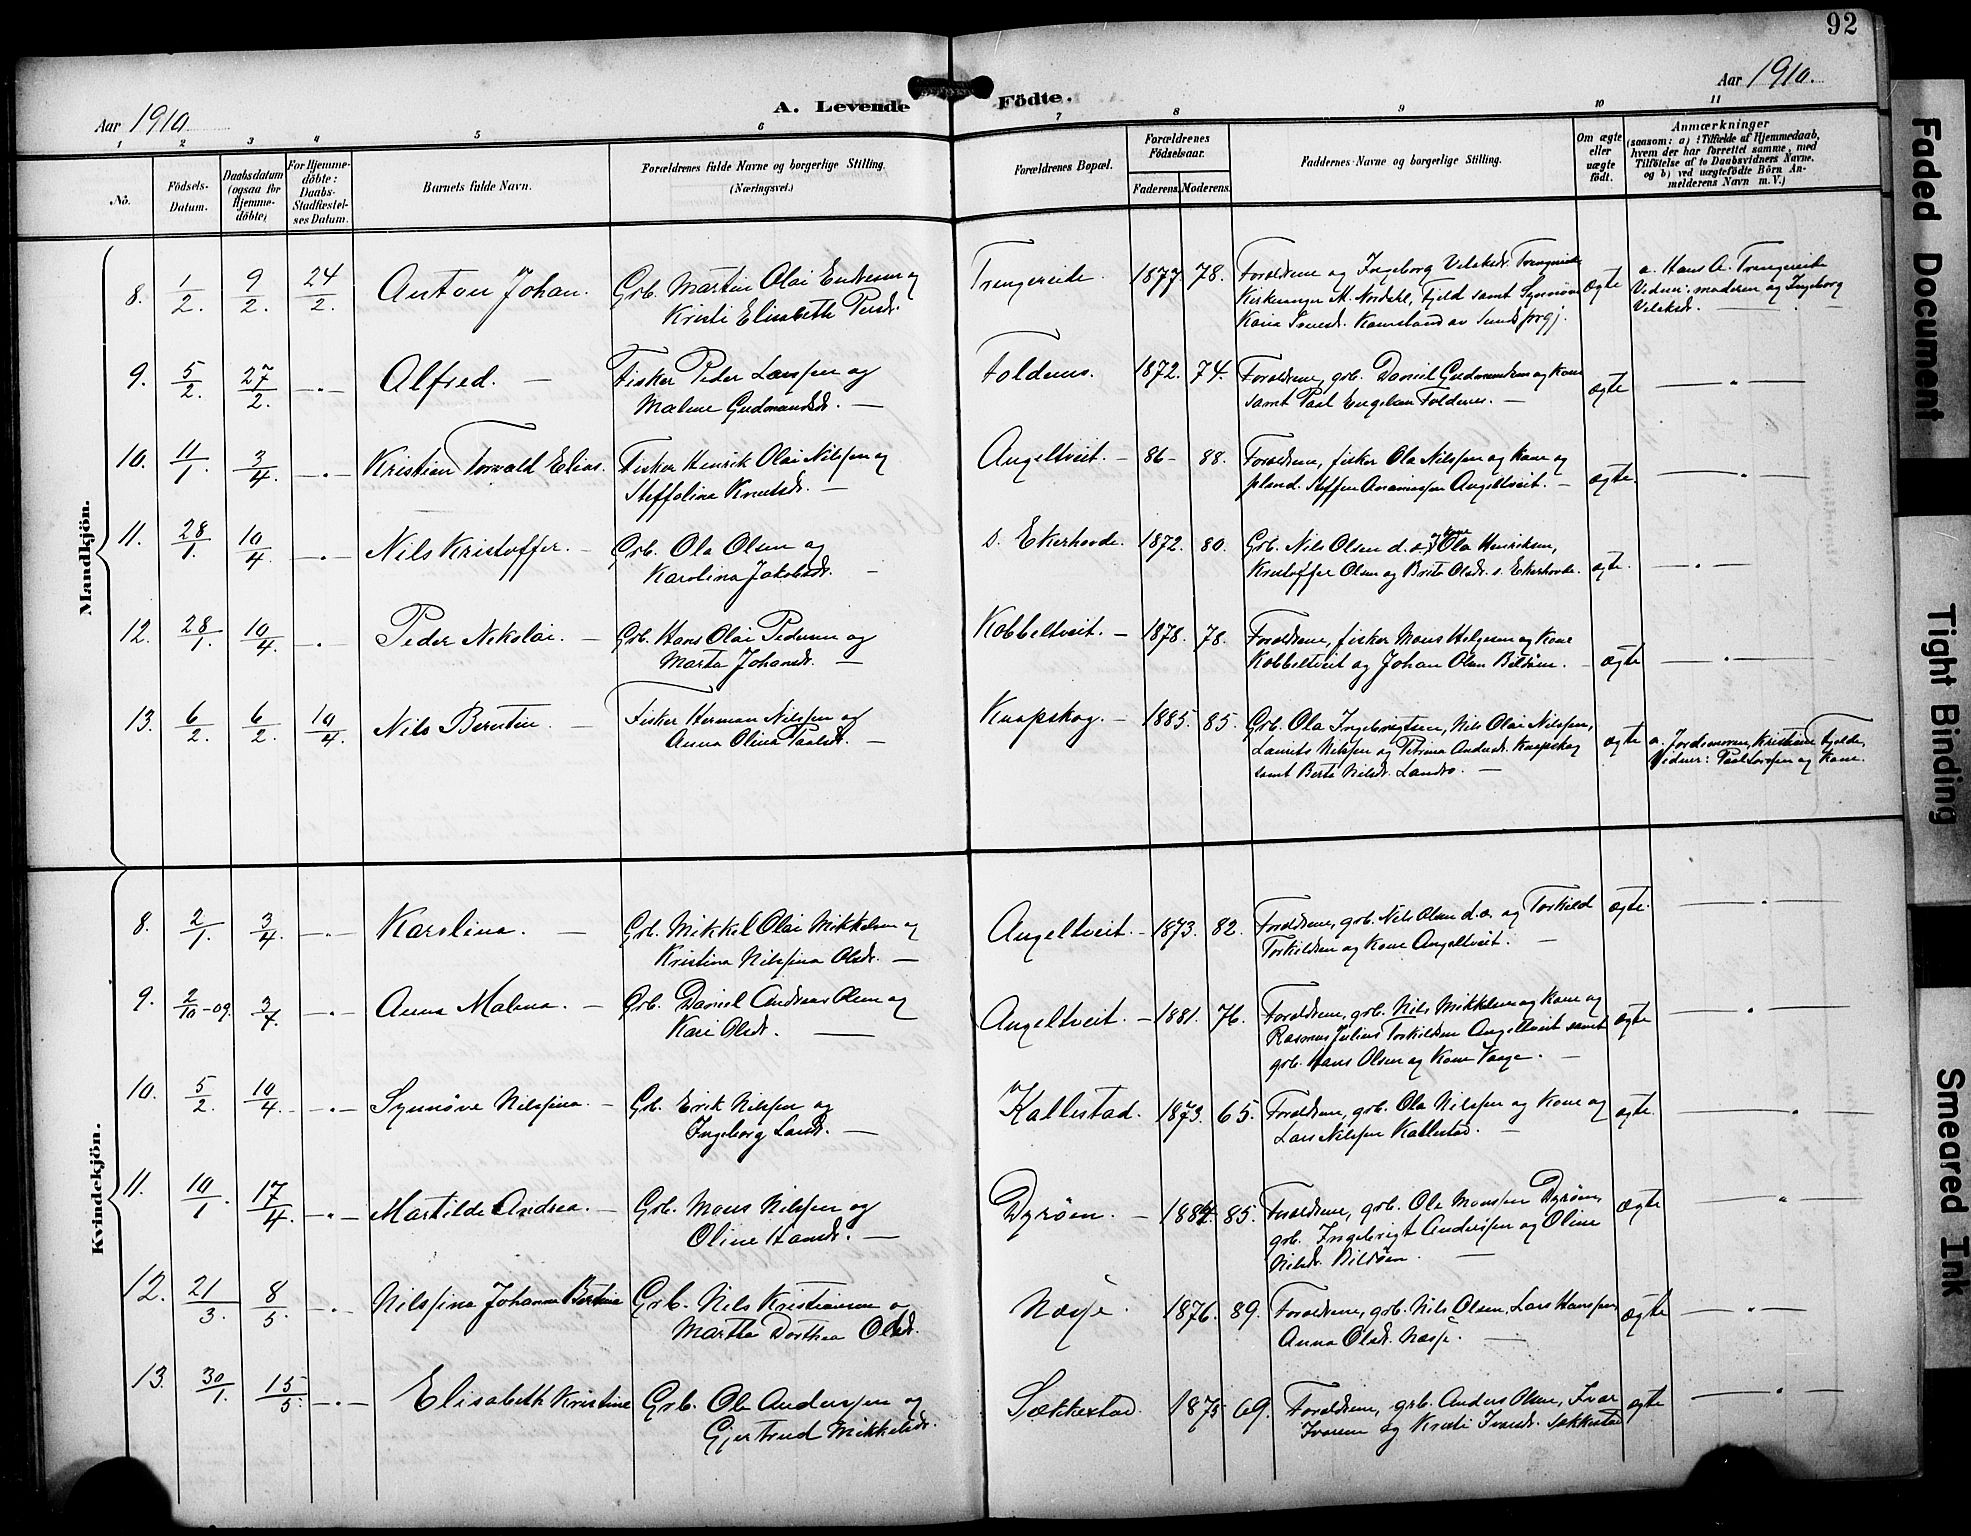 92
Aar 1910.
Aar 1910.
A. Levende Födte.
1 2 3 4 5 6 7 8 9 10 11
No.
Födsels-
Datum.
Daabsdatum
(ogsaa for
Hjemme-
döbte)
For Hjemme-
döbte:
Daabs-
Stadfæstel-
ses Datum.
Barnets fulde Navn.
Forældrenes fulde Navne og borgerlige Stilling.
(Næringsvei.)
Forældrenes Bopæl.
Forældrenes
Födselsaar.
Faderens. Moderens.
Faddernes Navne og borgerlige Stilling.
Om ægte
eller
uægte
födt.
Anmærkninger
(saasom: a) i Tilfælde af Hjemmedaab,
hvem der har forrettet samme, med
Tilföielse af to Daabsvidners Navne.
og b) ved uægtefödte Börn An-
melderens Navn m.V.)
Mandkjön.
8. 1/2. 9/2. 24/2. Anton Johan. Grb. Martin Olai Endresen og
Kristi Elisabeth Persd.
Trengereide. 1877. 78. Forældrene og Ingeborg Trengereide
Kirkesanger M. Nordahl, Fjeld samt Synnøve
ægte
a. Hans A. Trengereide
Vidner: moderen og Ingeborg
9. 5/2. 27/2. -"- Alfred. — Fisker Peder Larssen og
Malene Gudmundsd. —
Foldnes. 1872. 74. Forældrene, grb. Daniel Gudmundsen og kone
samt Paal Engelsen Foldnes. —
ægte — " —
10. 11/1. 3/4. -"- Kristian Torvald Elias. Fisker Henrik Olai Nilssen og
Steffalina Knutsd. —
Angeltveit. — 86 — 88. Forældrene, fisker Ola Nilssen og kone og
Steffen Ananiassen Angeltveit. —
ægte. — " —
11. 28/1. 10/4. -"- Nils Kristoffer. — Grb. Ola Olsen og
Karolina Jakobsd. —
s. Ekerhovde. 1872. 80. Grb. Nils Olsen d.æ., kone, Ola Henriksen,
Kristoffer Olsen og Brita Olsd. s. Ekerhovde.
ægte. — " —
12. 28/1. 10/4. -"- Peder Nikolai. — Grb. Hans Olai Pedersen og
Marta Johansd. —
Kobbeltveit. — 1878. 78. Forældrene, fisker Mons Helgesen og kone
Kobbeltveit og Johan Olsen Bildöen. —
ægte — " —
13. 6/2. 6/2. 10/4. Nils Berntin. — Fisker Herman Nilssen og
Anna Olina Paalsd. —
Knapskog. — 1885. 85. Grb. Ola Ingebrigtsen, Nils Olai Nilssen,
Laurits Nilssen og Petrina Andersd. Knapskog
samt Berta Nilsd. Landro. —
ægte a. Jordemoren, Kristiane
Vidner: Paal Larssen og kone.
Kvindekjön.
8. 2/1. 3/4. -"- Karolina. — Grb. Mikkel Olai Mikkelsen og
Kristina Nilssina Olsd. —
Angeltveit. — 1873. 82. Forældrene, grb. Nils Olsen d.æ. og Torkild
Torkildsen og kone Angeltveit. —
ægte. — " —
9. 2/10-09. 3/4. -"- Anna Malena. — Grb. Daniel Andreas Olsen og
Kari Olsd. —
Angeltveit. — 1881. 76. Forældrene, grb. Nils Mikkelsen og kone og
Rasmus Julius Torkildsen Angeltveit samt
grb. Hans Olsen og kone Vaage. —
ægte — " —
10. 5/2. 10/4. -"- Synnøve Nilssina. — Grb. Erik Nilssen og
Ingeborg Larsd. —
Kallestad. 1873. 65. Forældrene, grb. Ola Nilssen og kone og
Lars Nilssen Kallestad. —
ægte. — " —
11. 10/1. 17/4. -"- Martilde Andrea. — Grb. Mons Nilssen og
Oline Hansd. —
Dyröen. — 1884. 85. Forældrene, grb. Ole Monssen Dyröen,
grb. Ingebrigt Anderssen og Oline
Nilsd. Bildöen. —
ægte — " —
12. 21/3. 8/5. -"- Nilssina Johanna Bertina Grb. Nils Kristiansen og
Martha Dorthea Olsd.
Næsje. 1876. 89. Forældrene, grb. Nils Olsen, Lars Hanssen,
Anna Olsd. Næsje. —
ægte — " —
13. 30/1. 15/5. -"- Elisabeth Kristine Grb. Ole Anderssen og
Gjertrud Mikkelsd.
Sækkestad. 1875 69. Forældrene, grb. Anders Olsen, Ivar
Ivarsen og Kristi Ivarsd. Sækkestad
ægte — " —
Faded Document
Tight Binding
Smeared Ink